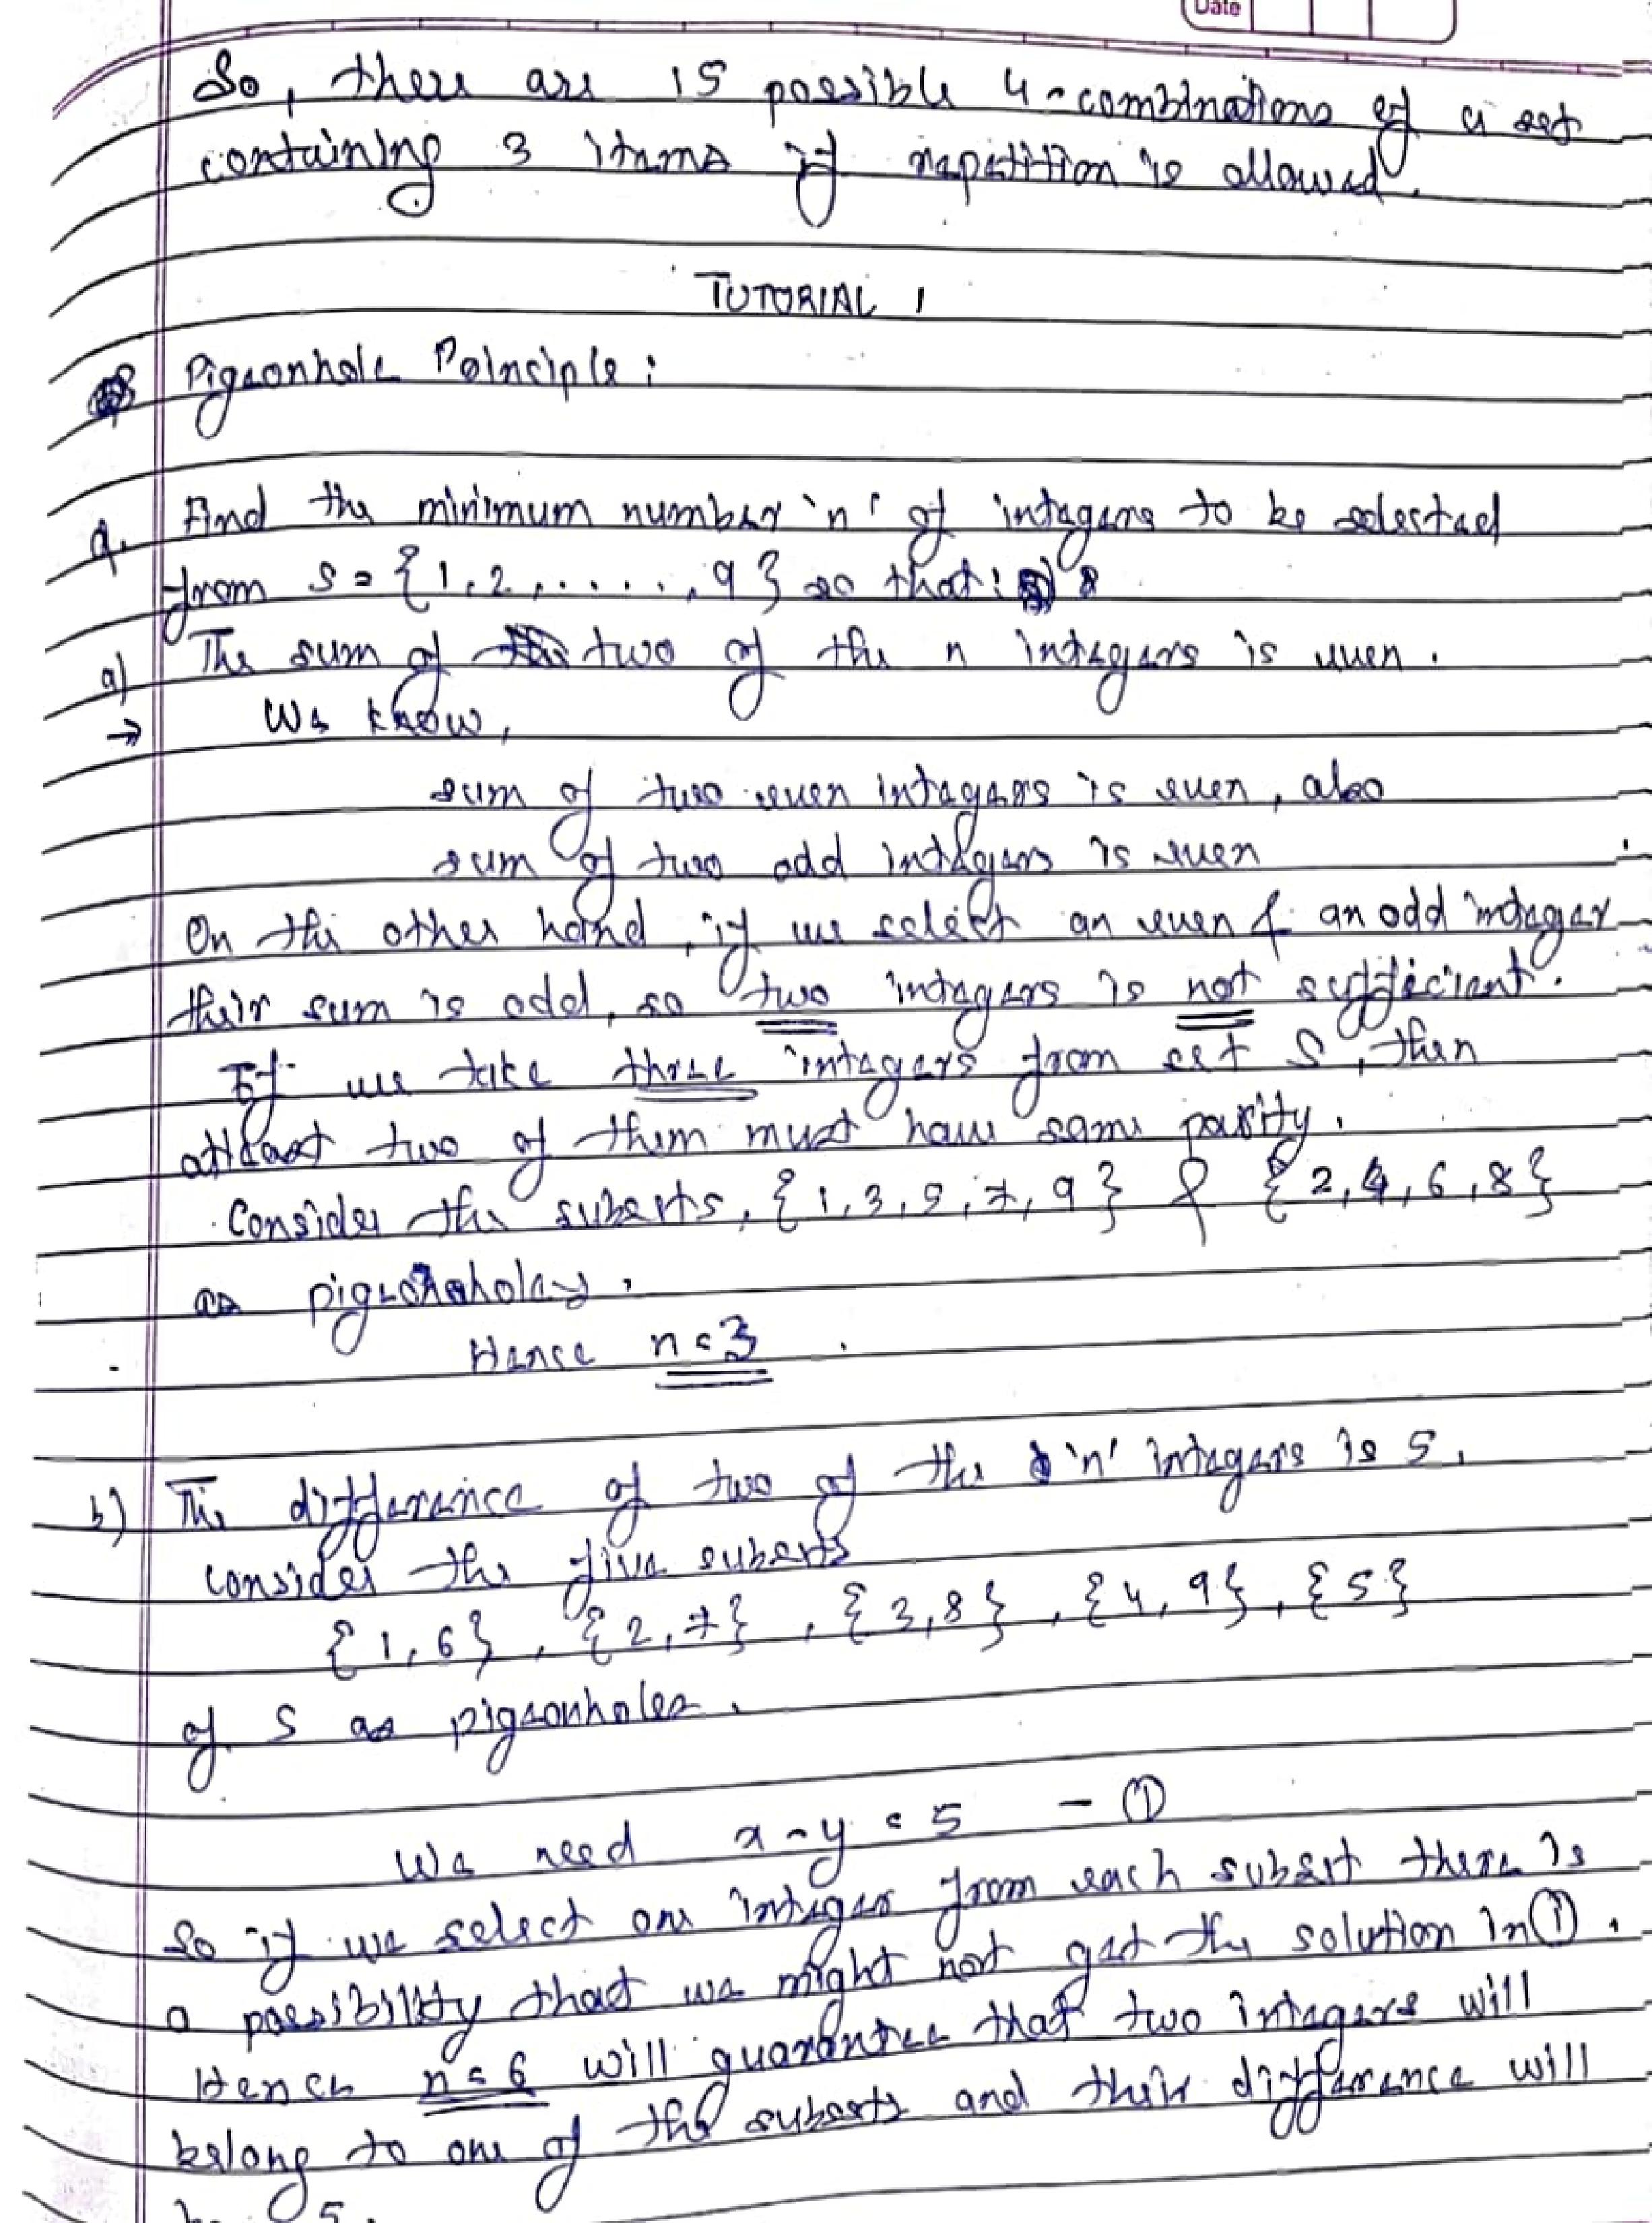 Date
So, there are 15 possible 4-combinations of a set
containing 3 items if repetition is allowed.
TUTORIAL 1
Pigeonhole Principle :
Q. Find the minimum number 'n' of integers to be selected
from S = {1, 2, ....., 9} so that :
a) The sum of two of the n integers is even.
→ We know,
sum of two even integers is even, also
sum of two odd integers is even
On the other hand, if we select an even & an odd integer
their sum is odd, so two integers is not sufficient.
If we take three integers from set S, then
atleast two of them must have same parity.
Consider the subsets, {1, 3, 5, 7, 9} & {2, 4, 6, 8}
as pigeonholes.
Hence n = 3.
b) The difference of two of the 'n' integers is 5.
consider the five subsets
{1, 6}, {2, 7}, {3, 8}, {4, 9}, {5}
of S as pigeonholes.
We need x - y = 5 - ①
So if we select one integer from each subset there is
a possibility that we might not get the solution in ①.
Hence n = 6 will guarantee that two integers will
belong to one of the subsets and their difference will
be 5.